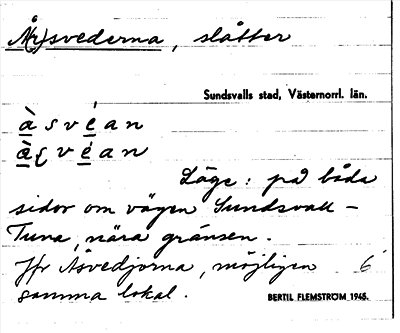 Å(r)svederna, slåtter
Sundsvalls stad, Västernorrl. län.
à s v é a n
v é a n
Läge: på båda
sidor om vägen Sundsvall –
Tuna, nära gränsen.
Jfr Åsvedjorna, möjligen 6
samma lokal. BERTIL FLEMSTRÖM 1945.